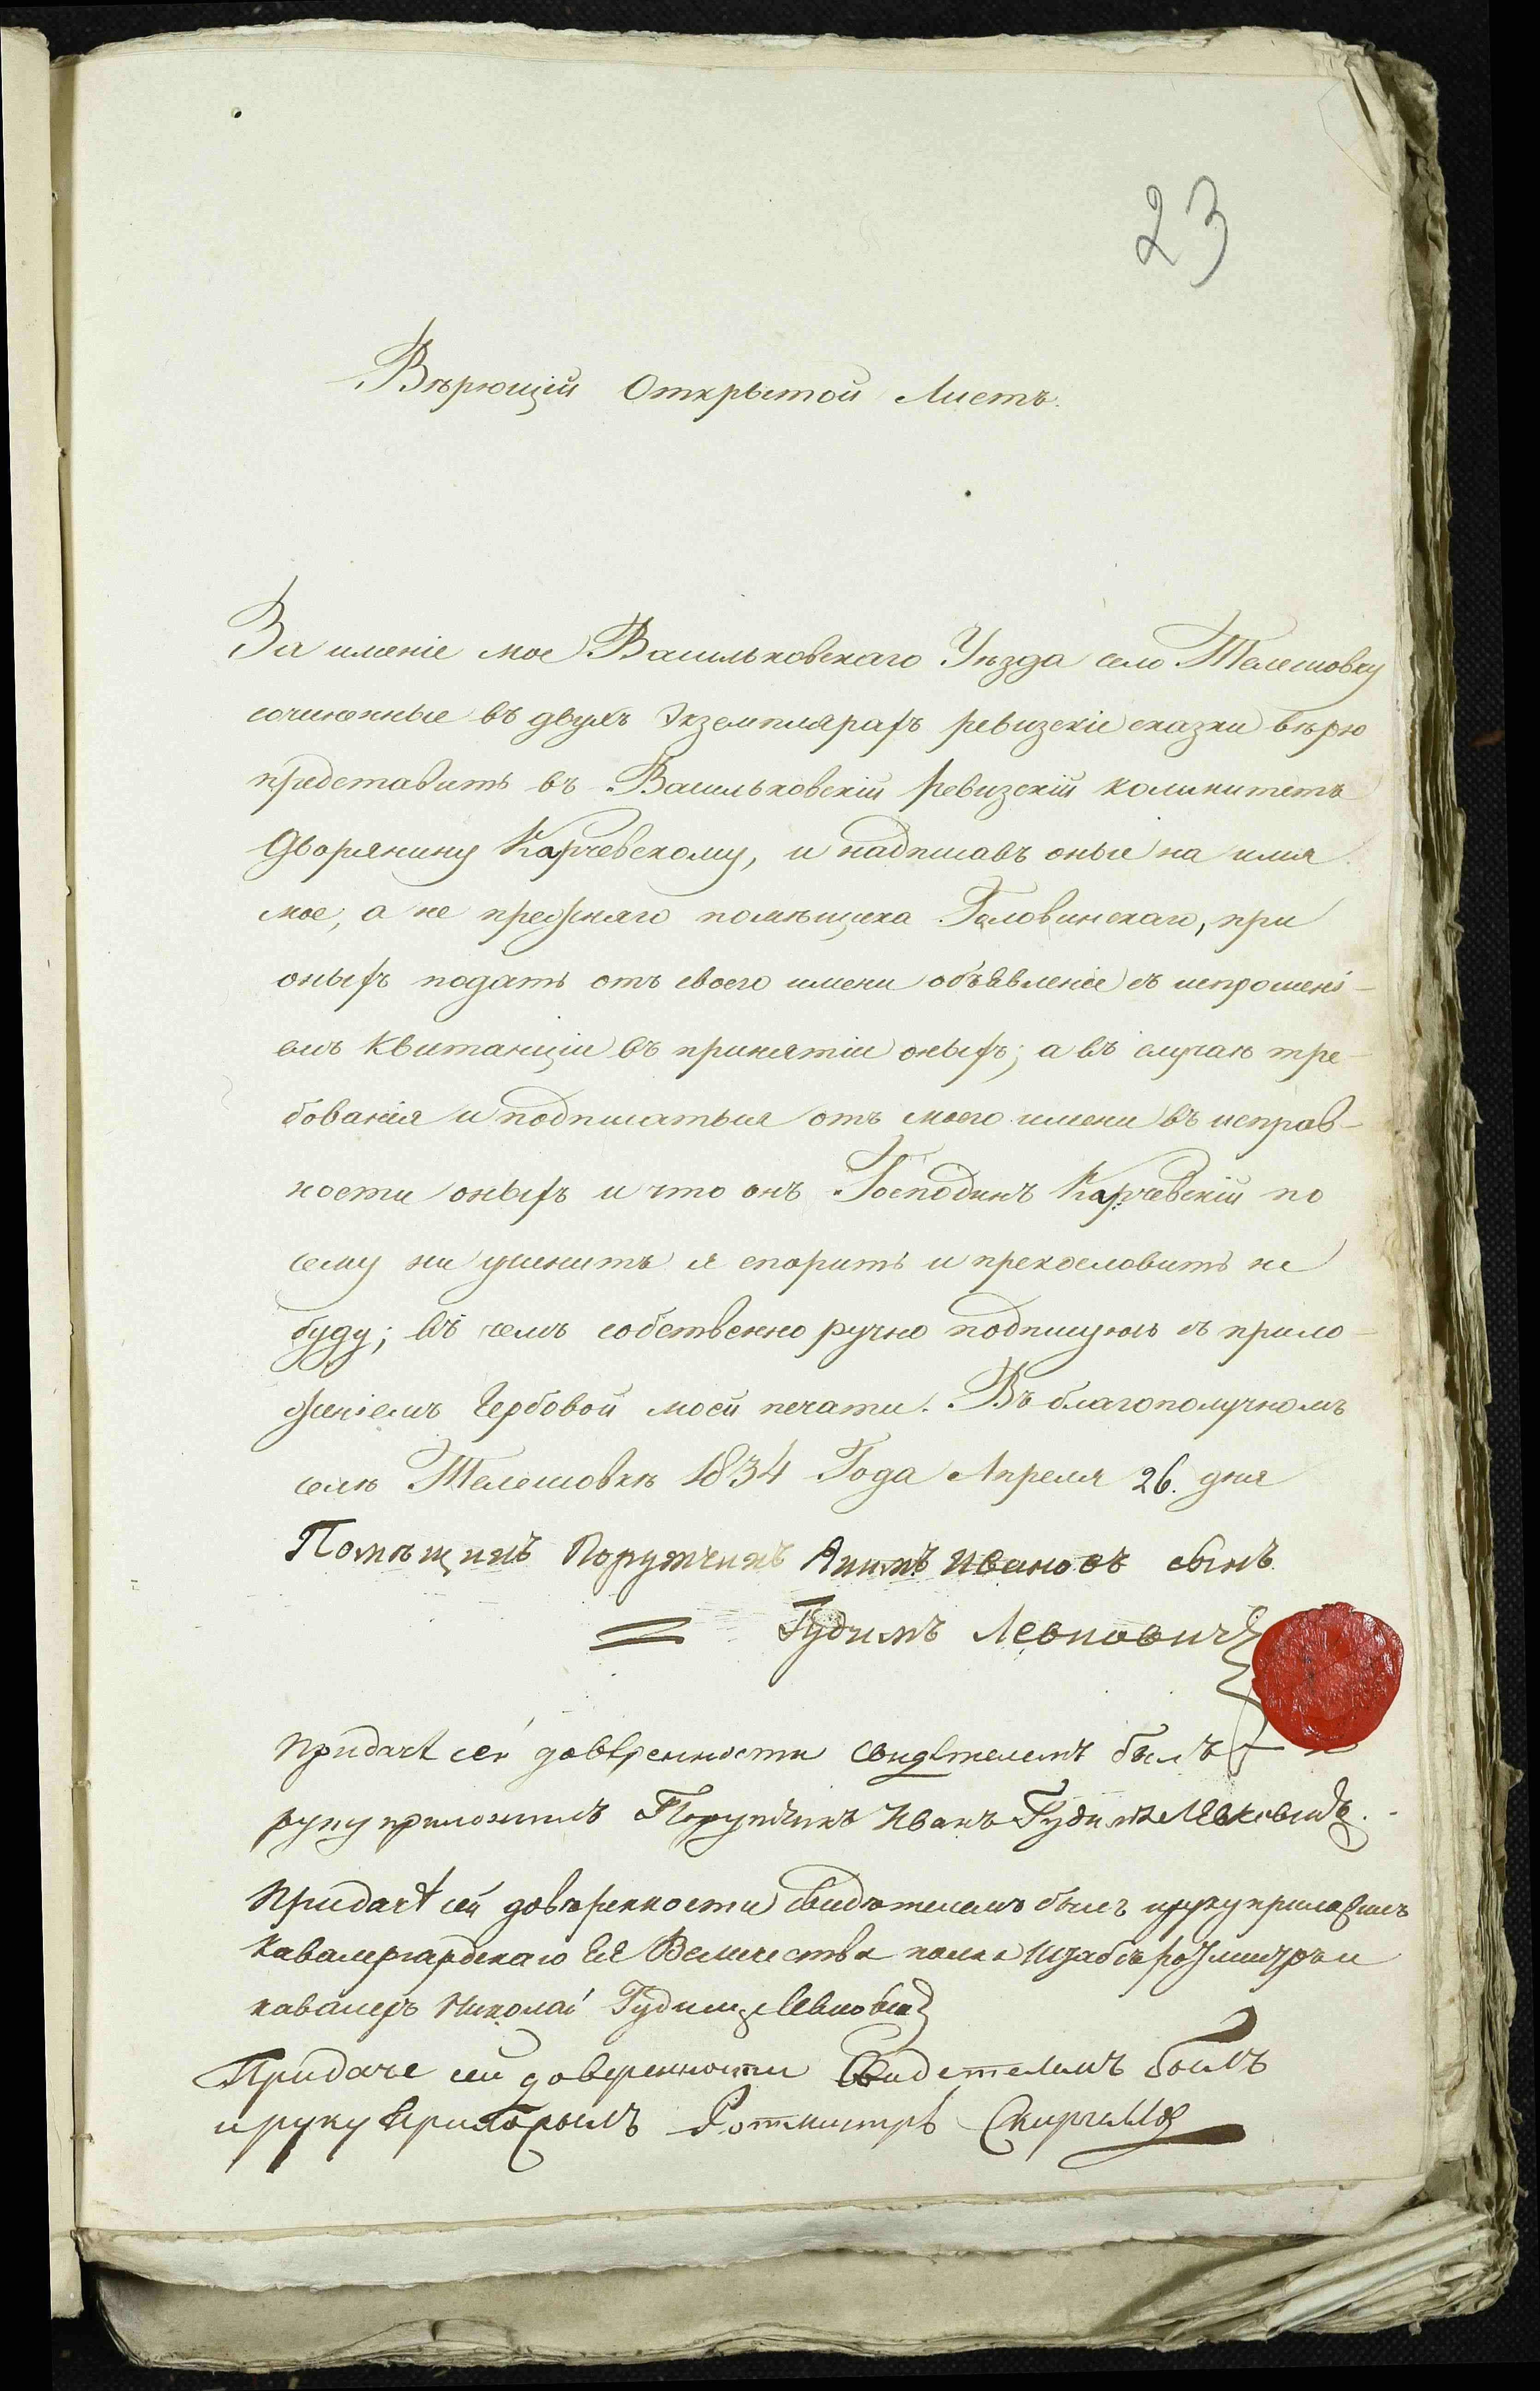 23
Вѣрющій Открытой Листъ.
За имѣніе мое Васильковскаго Уѣзда село Телешовку
сочиненные въ двухъ Экземплярахъ ревизскіе сказки вѣрю
представить въ Васильковскій ревизскій коминитетъ
Дворянину Карчевскому, и надписавъ оные на имя
мое, а не прежняго помѣщика Головинскаго, при
оныхъ подать отъ своего имени объявленіе съ испрошені-
емъ квитанціи въ принятіи оныхъ; а въ случаѣ тре-
бованія и подписаться отъ моего имени въ исправ-
ности оныхъ и что онъ Господинъ Карчевскій по
сему ни учинитъ я спорить и прекословить не
буду; въ чемъ собственно ручно подпишусь съ прило-
женіемъ Гербовой моей печати. Въ благополучномъ
селѣ Телешовкѣ 1834 Года Апреля 26. дня
Помѣщикъ Порутчикъ Якимъ Ивановъ сынъ
= Гудимъ Левковичъ
Придачѣ сей довѣренности свидѣтелемъ былъ и
руку приложилъ Порутчикъ Иванъ Гудимъ Левковичъ.
Придачѣ сей довѣренности свидѣтелемъ былъ и руку приложилъ
Кавалергардскаго ЕЯ Величества полка Штабсъ ротмистръ и
кавалеръ Николай Гудимъ Левковичъ
Придаче сей доверенности Свидетелемъ былъ
и руку приложылъ Ротмистръ